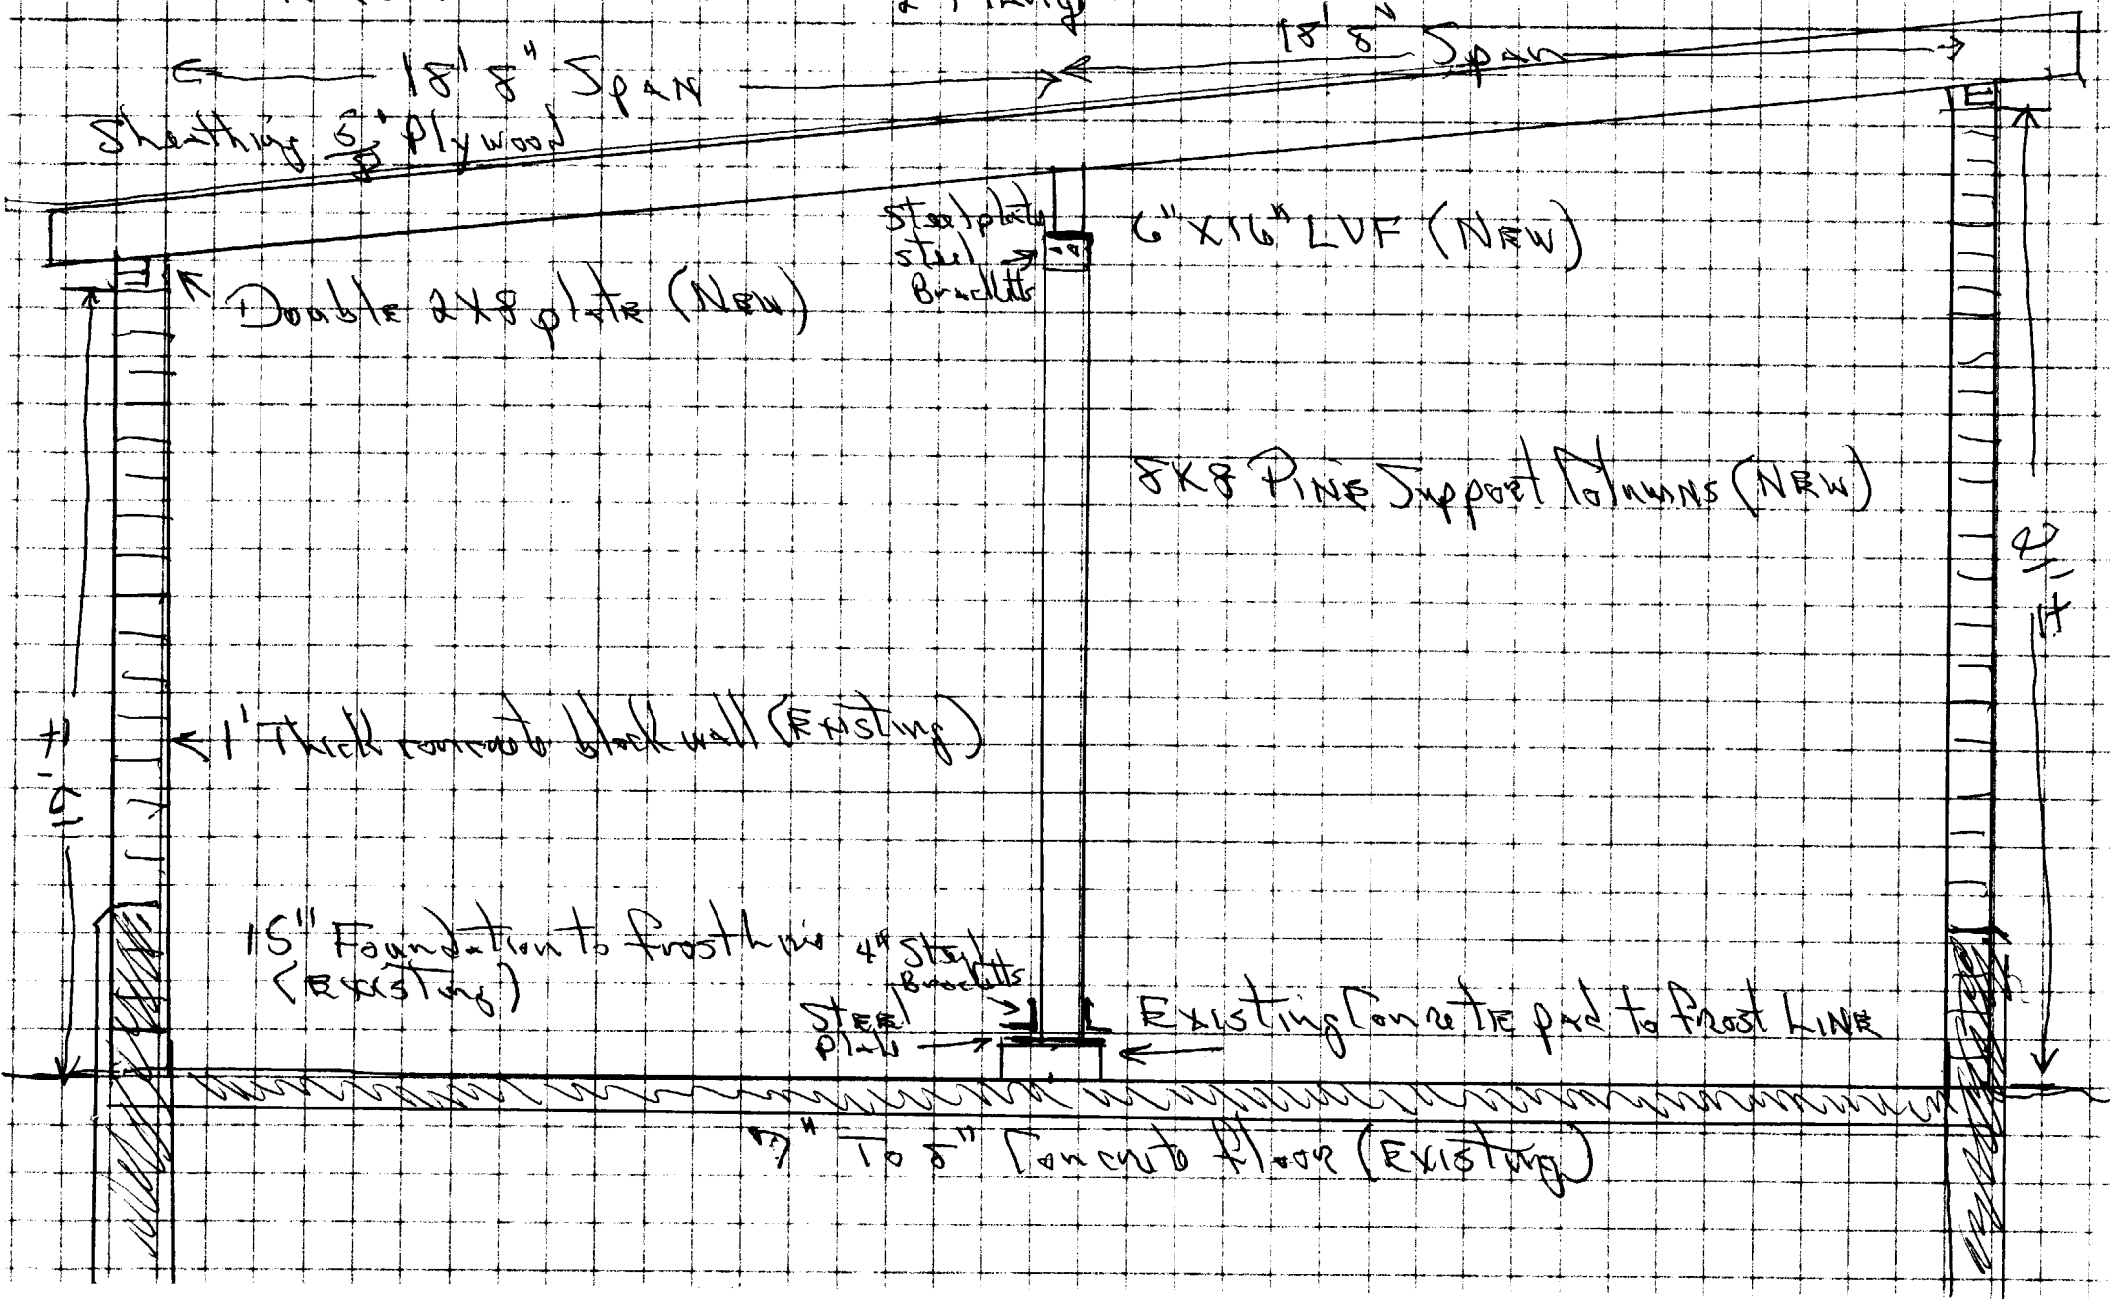 18' 8" Span
18' 8" Span
Sheathing 5/8" Plywood
Steel plate
steel
Bracketts
6" X 16" LVF (NEW)
Double 2X8 plate (NEW)
8X8 PINE Support Columns (NEW)
1' Thick concrete block wall (Existing)
15" Foundation to frost line
(Existing)
4" Steel
Bracketts
STEEL
Plate
Existing Concrete pad to frost LINE
" To " Concrete floor (Existing)